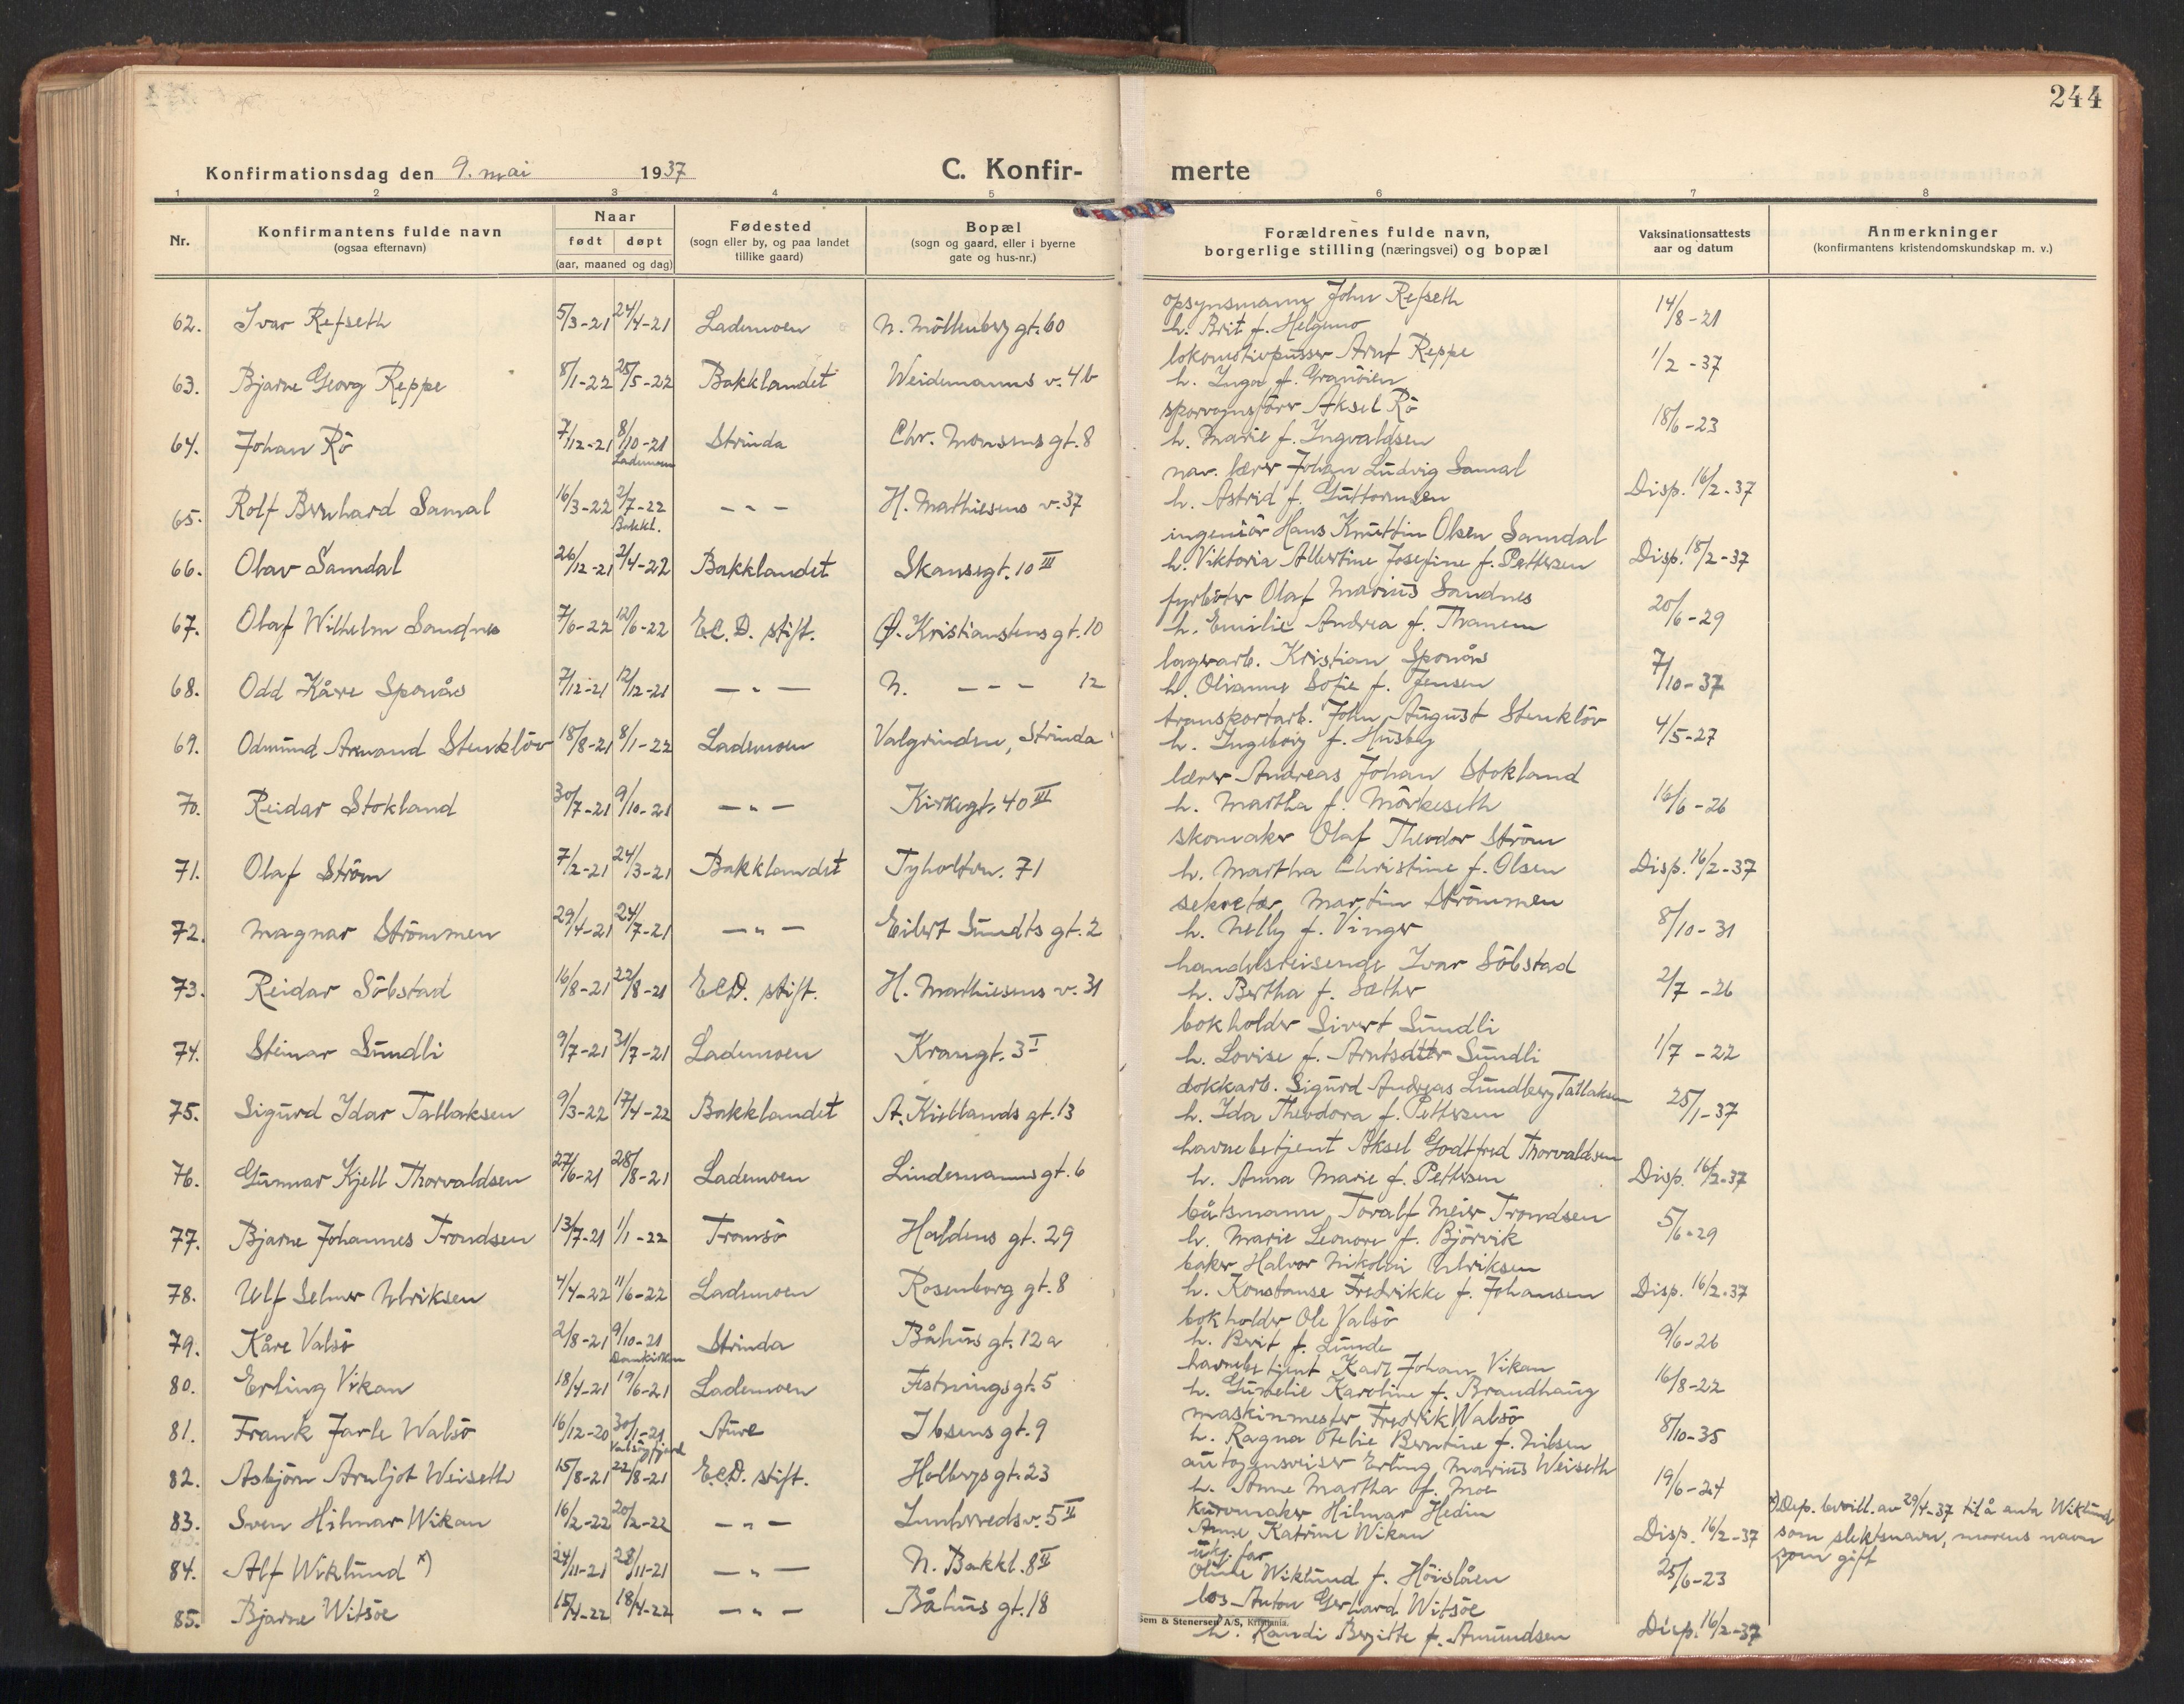 244
Konfirmationsdag den 9. mai 1937 C. Konfir- merte
1 2 3 4 5 6 7 8
Nr. Konfirmantens fulde navn (ogsaa efternavn) Naar født døpt (aar, maaned og dag) Fødested (sogn eller by, og paa landet tillike gaard) Bopæl (sogn og gaard, eller i byerne gate og hus-nr.) Forældrenes fulde navn, borgerlige stilling (næringsvei) og bopæl Vaksinationsattests aar og datum Anmerkninger (konfirmantens kristendomskundskap m. v.)
62. Ivar Refseth 5/3-21 24/4-21 Lademoen N. Möllenberg gt. 60 opsynsmann John Refseth
h. Brit f. Helgemo 14/8-21
63. Bjarne Georg Reppe 8/1-22 25/5-22 Bakklandet Weidemanns v. 4b lokomotivpusser Arnt Reppe
h. Inga f. Granöien 1/2-37
64. Johan Rö 7/12-21 8/10-21 Lademoen Strinda Chr. Monsens gt. 8 sporvognsförer Aksel Rö
h. Marie f. Ingvaldsen 18/6-23
65. Rolf Bernhard Samal 16/3-22 2/7-22 Bakkl. - - - H. Mathiesens v. 37 nav. lærer Johan Ludvig Samal
h. Astrid f. Guttormsen Disp. 16/2-37
66. Olav Samdal 26/12-21 2/4-22 Bakklandet Skansegt. 10 III ingeniör Hans Knuttin Olsen Samdal
h. Viktoria Albertine Josefine f. Pettersen Disp. 18/2-37
67. Olaf Wilhelm Sandnes 7/6-22 12/6-22 E.C.D. stift. Ø. Kristianstens gt. 10 fyrböter Olaf Marius Sandnes
h. Emilie Andrea f. Thanem 20/6-29
68. Odd Kåre Sponås 7/12-21 12/12-21 — " — N. - - - 12 lagerarb. Kristian Sponås
h. Olianna Sofie f. Jensen 7/10-37
69. Odmund Armand Stenklöv 18/8-21 8/1-22 Lademoen Valgrinden, Strinda transportarb. John August Stenklöv
h. Ingeborg f. Husby 4/5-27
70. Reidar Stokland 30/7-21 9/10-21 — " — Kirkegt. 40 III lærer Andreas Johan Stokland
h. Martha f. Mörkeseth 16/6-26
71. Olaf Ström 7/2-21 24/3-21 Bakklandet Tyholtvn. 71 skomaker Olaf Theodor Ström
h. Martha Christine f. Olsen Disp. 16/2-37
72. Magnar Strömmen 29/4-21 24/7-21 — " — Eilert Sundts gt. 2 sekretær Martin Strömmen
h. Nelly f. Vinger 8/10-31
73. Reidar Söbstad 16/8-21 22/8-21 E.C.D. stift. H. Mathiesens v. 31 handelsreisende Ivar Söbstad
h. Bertha f. Sæther 2/7-26
74. Steinar Sundli 9/7-21 31/7-21 Lademoen Krangt. 3 I bokholder Sivert Sundli
h. Lovise f. Arntsdttr Sundli 1/7-22
75. Sigurd Idar Tallaksen 9/3-22 17/4-22 Bakklandet A. Kiellands gt. 13 dokkarb. Sigurd Andreas Lundberg Tallaksen
h. Ida Theodora f. Pettersen 25/1-37
76. Gunnar Kjell Thorvaldsen 27/6-21 28/8-21 Lademoen Lindemanns gt. 6 havnebetjent Aksel Godtfred Thorvaldsen
h. Anna Marie f. Pettersen Disp. 16/2-37
77. Bjarne Johannes Trondsen 13/7-21 1/1-22 Tromsö Haldens gt. 29 båtsmann Toralf Meier Trondsen
h. Marie Leonore f. Björvik 5/6-29
78. Ulf Selmer Ulriksen 4/4-22 11/6-22 Lademoen Rosenborg gt. 8 baker Halvor Nikolai Ulriksen
h. Konstanse Fredrikke f. Johansen Disp. 16/2-37
79. Kåre Valsö 2/8-21 9/10-21 Domkirken Strinda Båhus gt. 12a bokholder Ole Valsö
h. Berit f. Lunde 9/6-26
80. Erling Vikan 18/4-21 19/6-21 Lademoen Festningsgt. 5 havnebetjent Karl Johan Vikan
h. Gunelie Karoline f. Brandhaug 16/8-22
81. Frank Jarle Walsö 16/12-20 30/1-21 Valsöyfjord Aure Ibsens gt. 9 maskinmester Fredrik Walsö
h. Ragna Otelie Berntine f. Nilsen 8/10-35
82. Asbjörn Arnljot Weiseth 15/8-21 22/8-21 E.C.D. stift. Holbergs gt. 23 autogensveiser Erling Marius Weiseth
h. Anne Martha f. Moe 19/6-24
83. Sven Hilmar Wikan 16/2-22 20/2-22 — " — Innherredsv. 5 II kurvmaker Hilmar Hedin
Anne Katrine Wikan Disp. 16/2-37
84. Alf Wiklund x) 24/11-21 28/11-21 — " — N. Bakkl. 8 II ukj. far
Oline Wiklund f. Höislåen 25/6-23 x) Dep. bevill. av 29/4-37 til å anta Wiklund
som slektsnavn, morens navn
som gift
85. Bjarne Witsöe 15/4-22 18/4-22 — " — Båhus gt. 18 los Anton Gerhard Witsöe
h. Randi Bergitte f. Amundsen Disp. 16/2-37
Sem & Stenersen A/S, Kristiania.